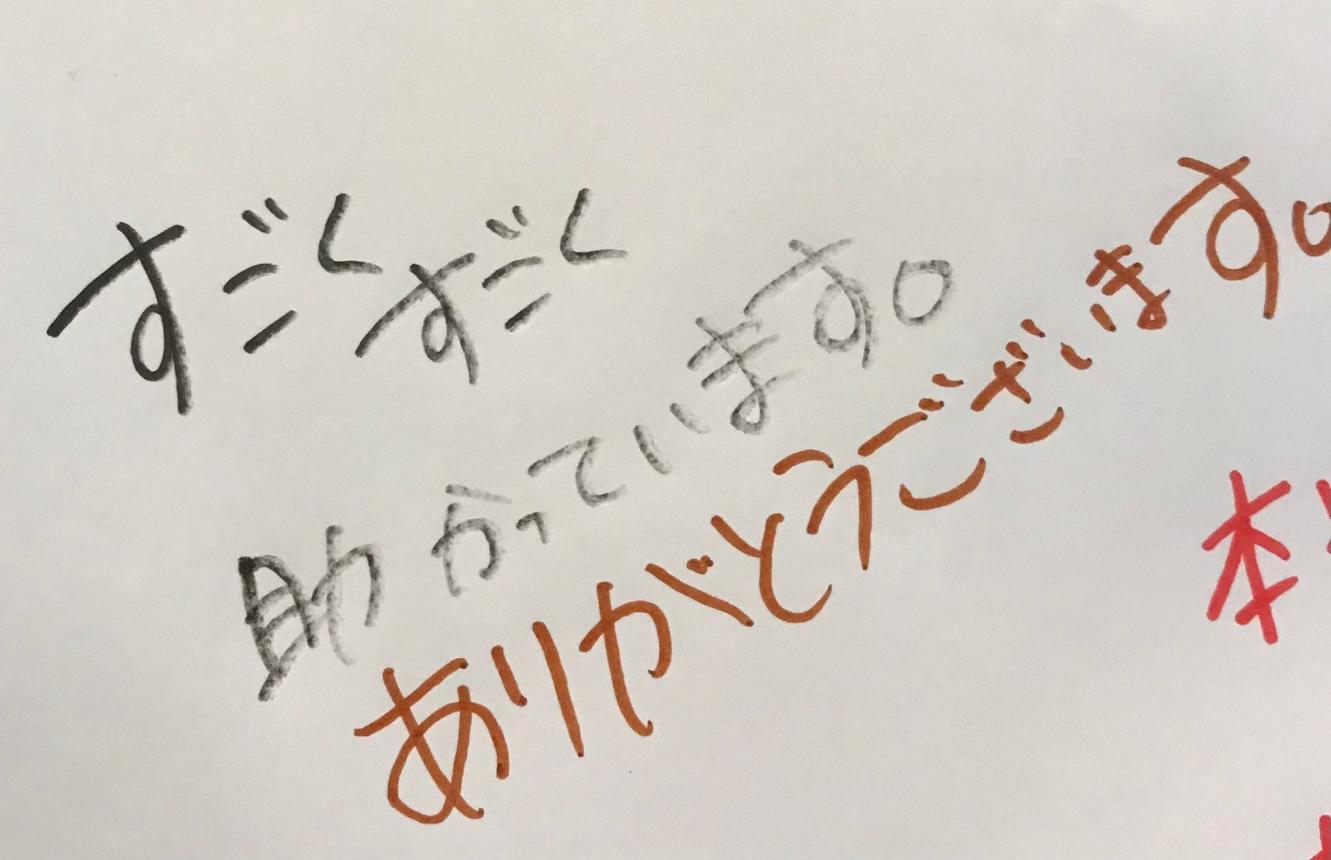 すごくすごく
助かっています。
ありがとうございます。
本